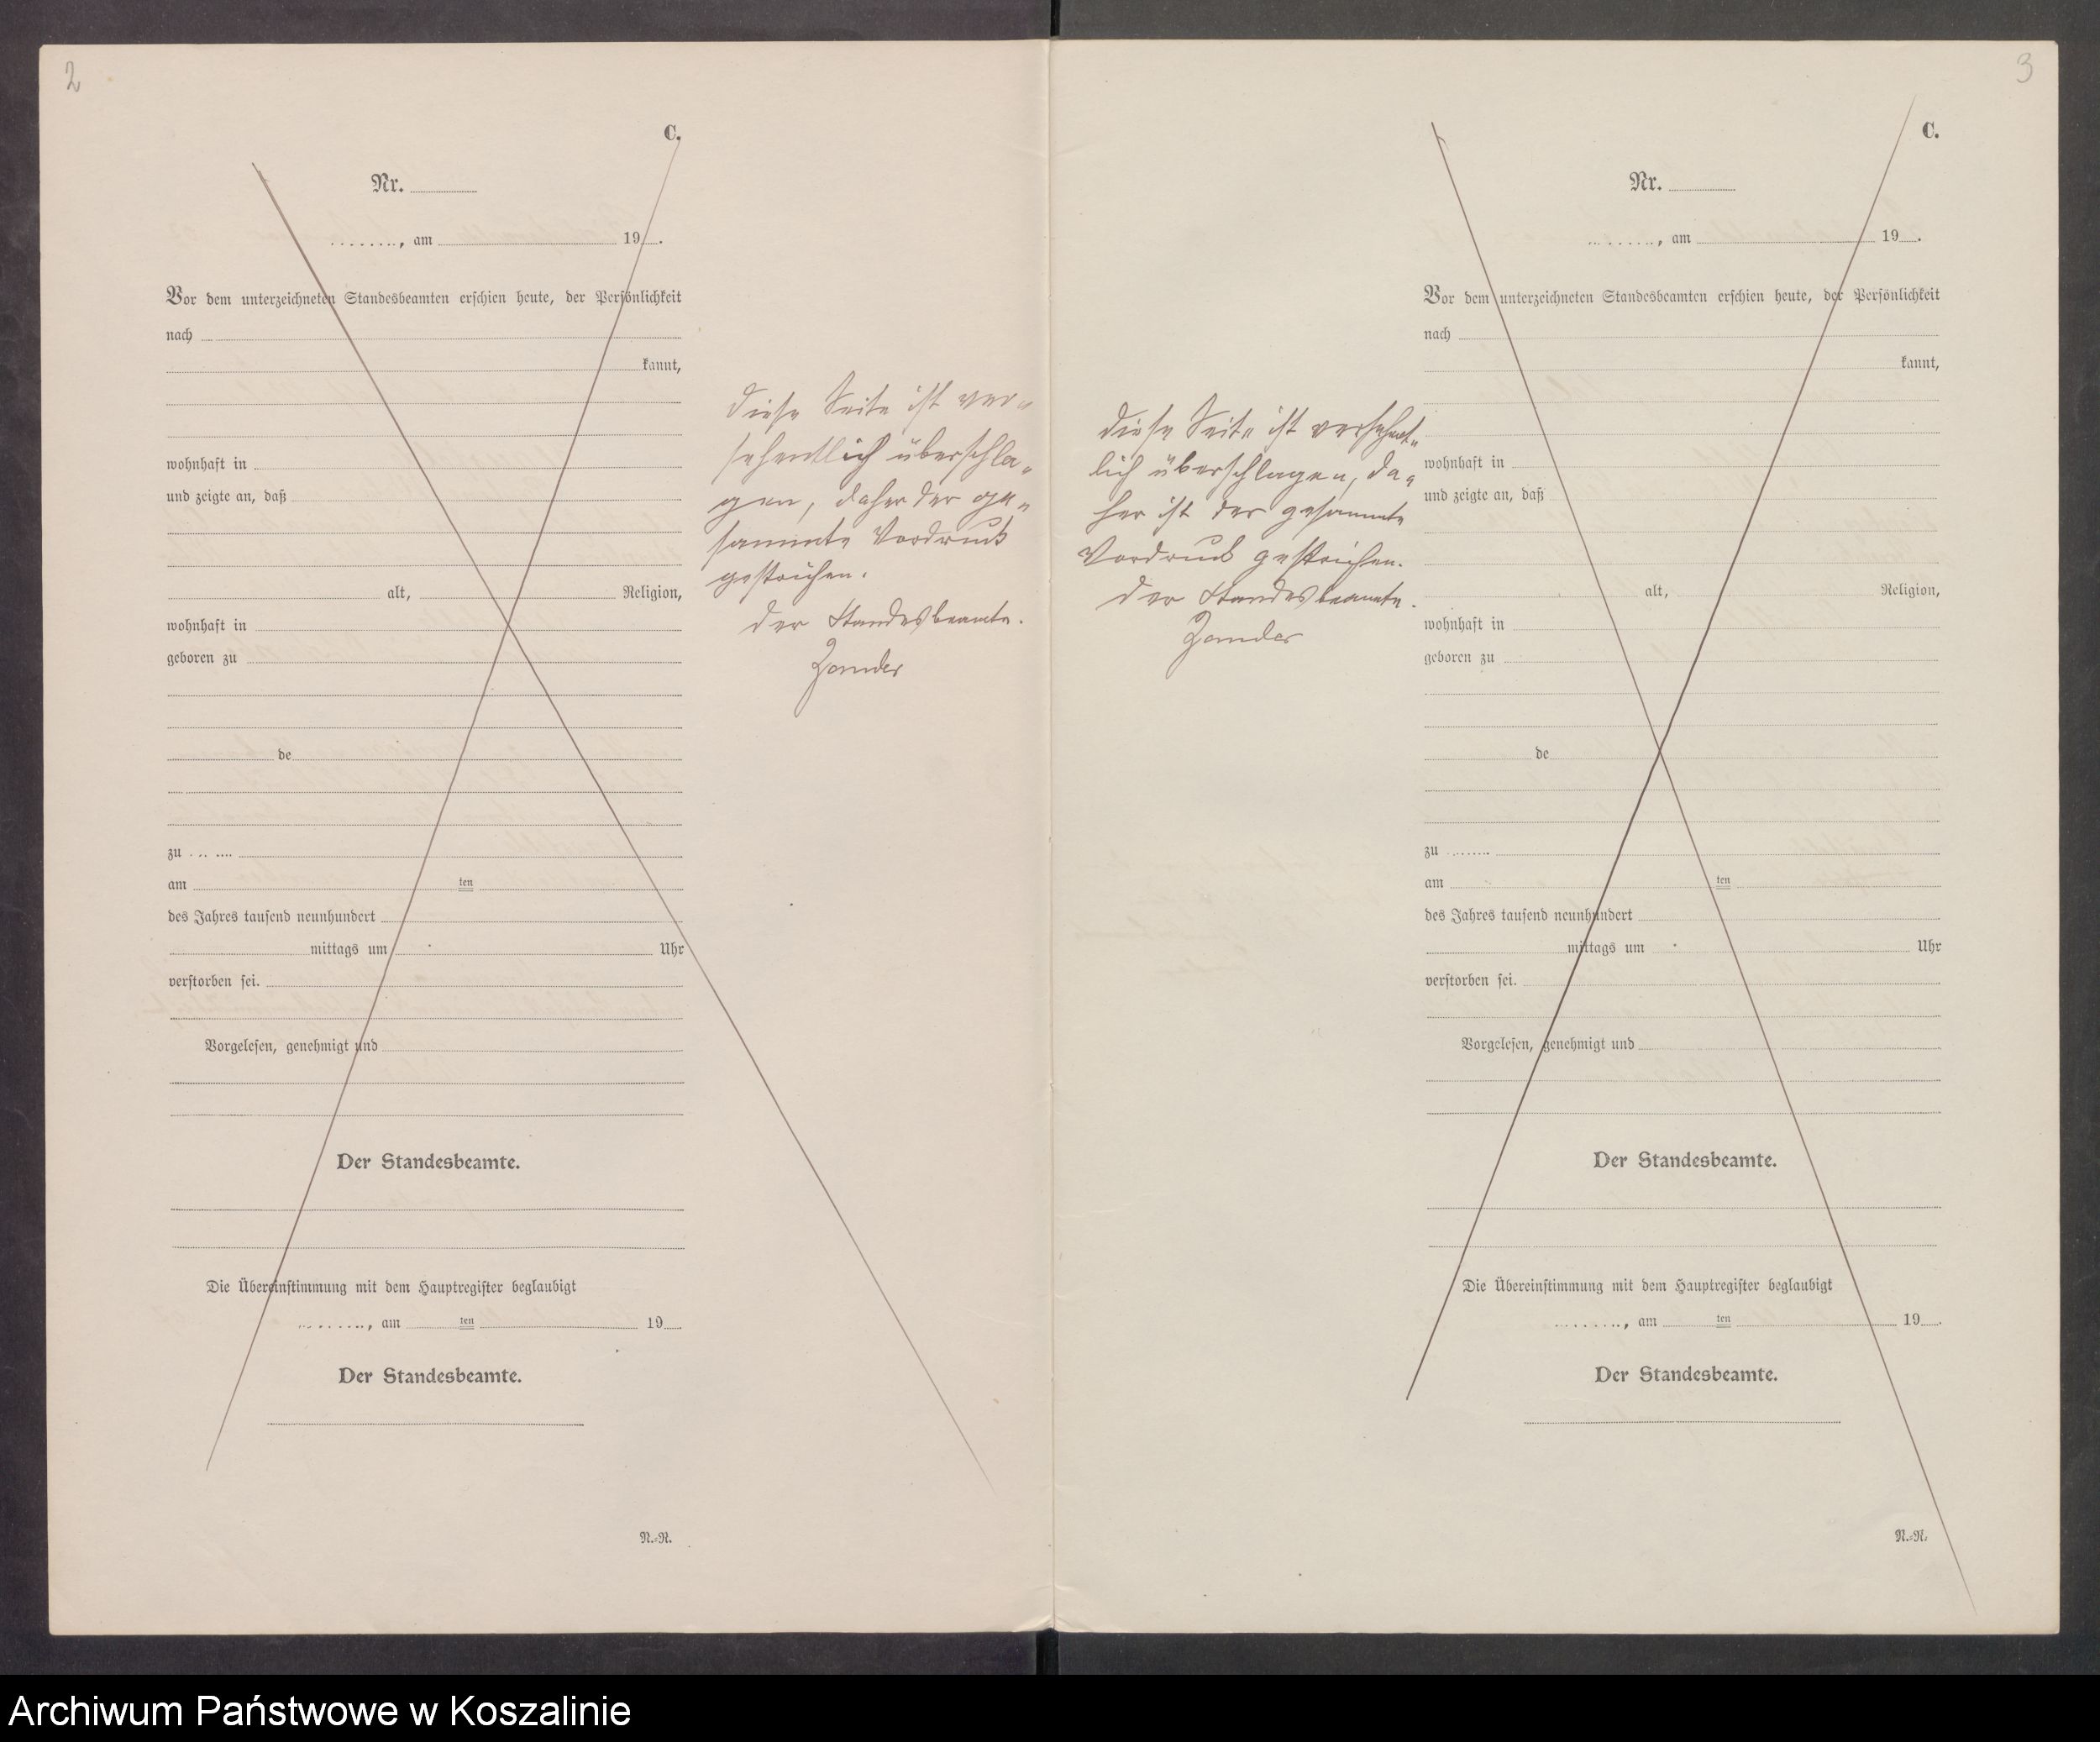 2
C.
Nr.
........, am 19 .
Vor dem unterzeichneten Standesbeamten erschien heute, der Persönlichkeit
nach
kannt,
wohnhaft in
und zeigte an, daß
alt, Religion,
wohnhaft in
geboren zu
de
zu
am ten
des Jahres tausend neunhundert
mittags um Uhr
verstorben sei.
Vorgelesen, genehmigt und
Der Standesbeamte.
Die Übereinstimmung mit dem Hauptregister beglaubigt
........, am ten 19
Der Standesbeamte.
N.-N.
diese Seite ist ver-
sehentlich überschla-
gen, daher der ge-
sammte Vordruck
gestrichen.
der Standesbeamte.
Zander
3
C.
Nr.
........, am 19 .
Vor dem unterzeichneten Standesbeamten erschien heute, der Persönlichkeit
nach
kannt,
wohnhaft in
und zeigte an, daß
alt, Religion,
wohnhaft in
geboren zu
de
zu
am ten
des Jahres tausend neunhundert
mittags um Uhr
verstorben sei.
Vorgelesen, genehmigt und
Der Standesbeamte.
Die Übereinstimmung mit dem Hauptregister beglaubigt
........, am ten 19 .
Der Standesbeamte.
N.-N.
diese Seite ist versehent-
lich überschlagen, da-
her ist der gesammte
Vordruck gestrichen.
der Standesbeamte.
Zander
Archiwum Państwowe w Koszalinie